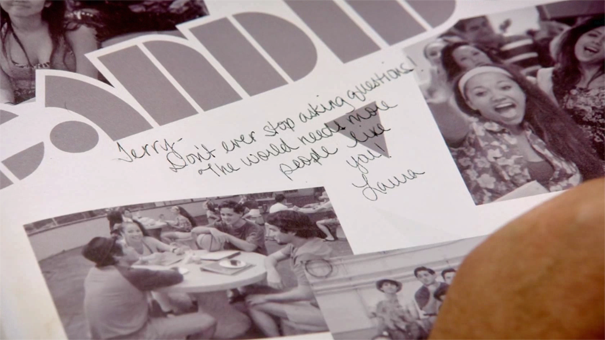 CANDID
Jerry-
Don't ever stop asking questions!
The world needs more
people like
you
Laura